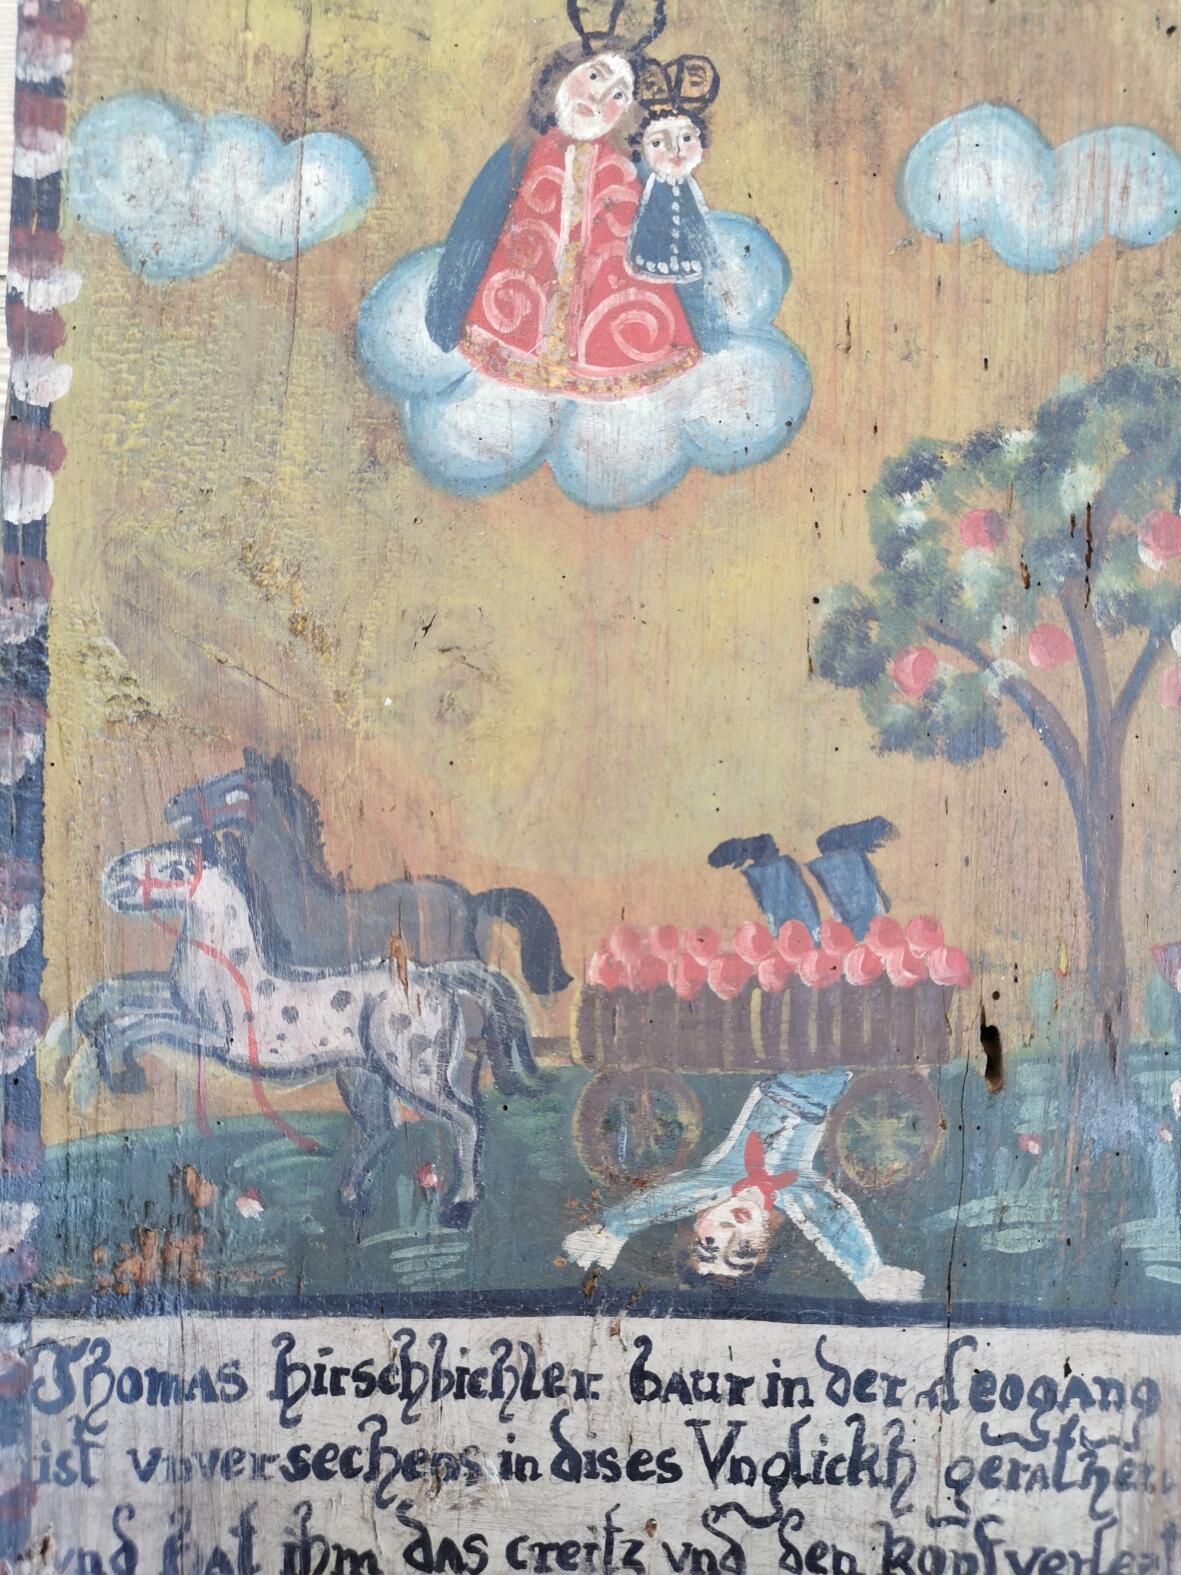 Thomas hirschbichler baur in der Leogang
ist vnversechens in dises Vnglickh gerathen
vnd hat ihm das creitz vnd den kopf verlezt